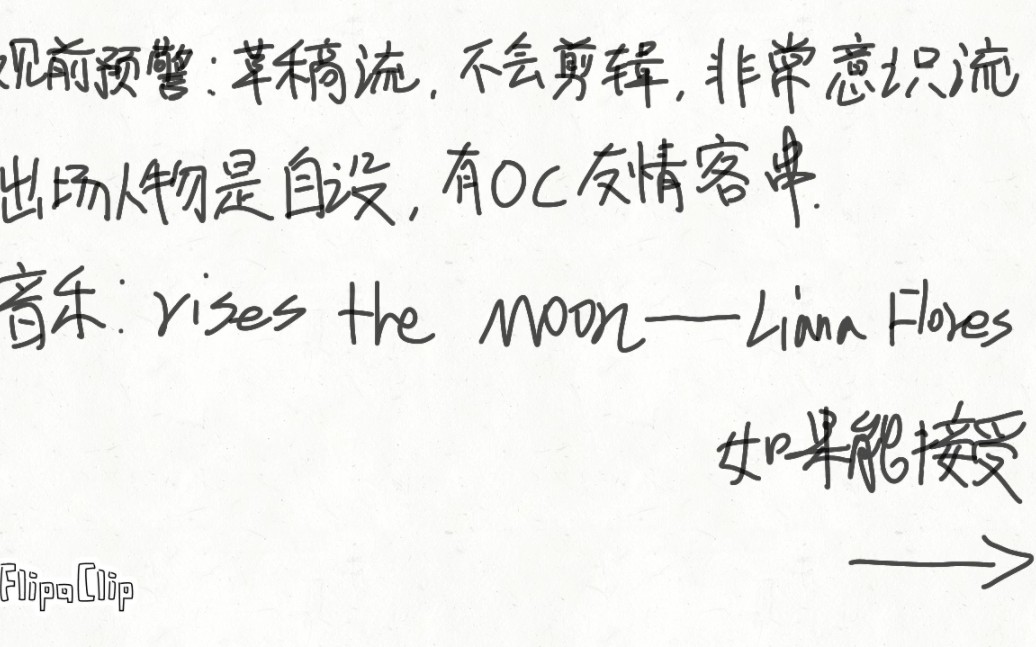 观前预警:草稿流,不会剪辑,非常意识流
出场人物是自设,有OC友情客串.
音乐:rises the moon——Liana Flores
如果能接受
→
FlipaClip